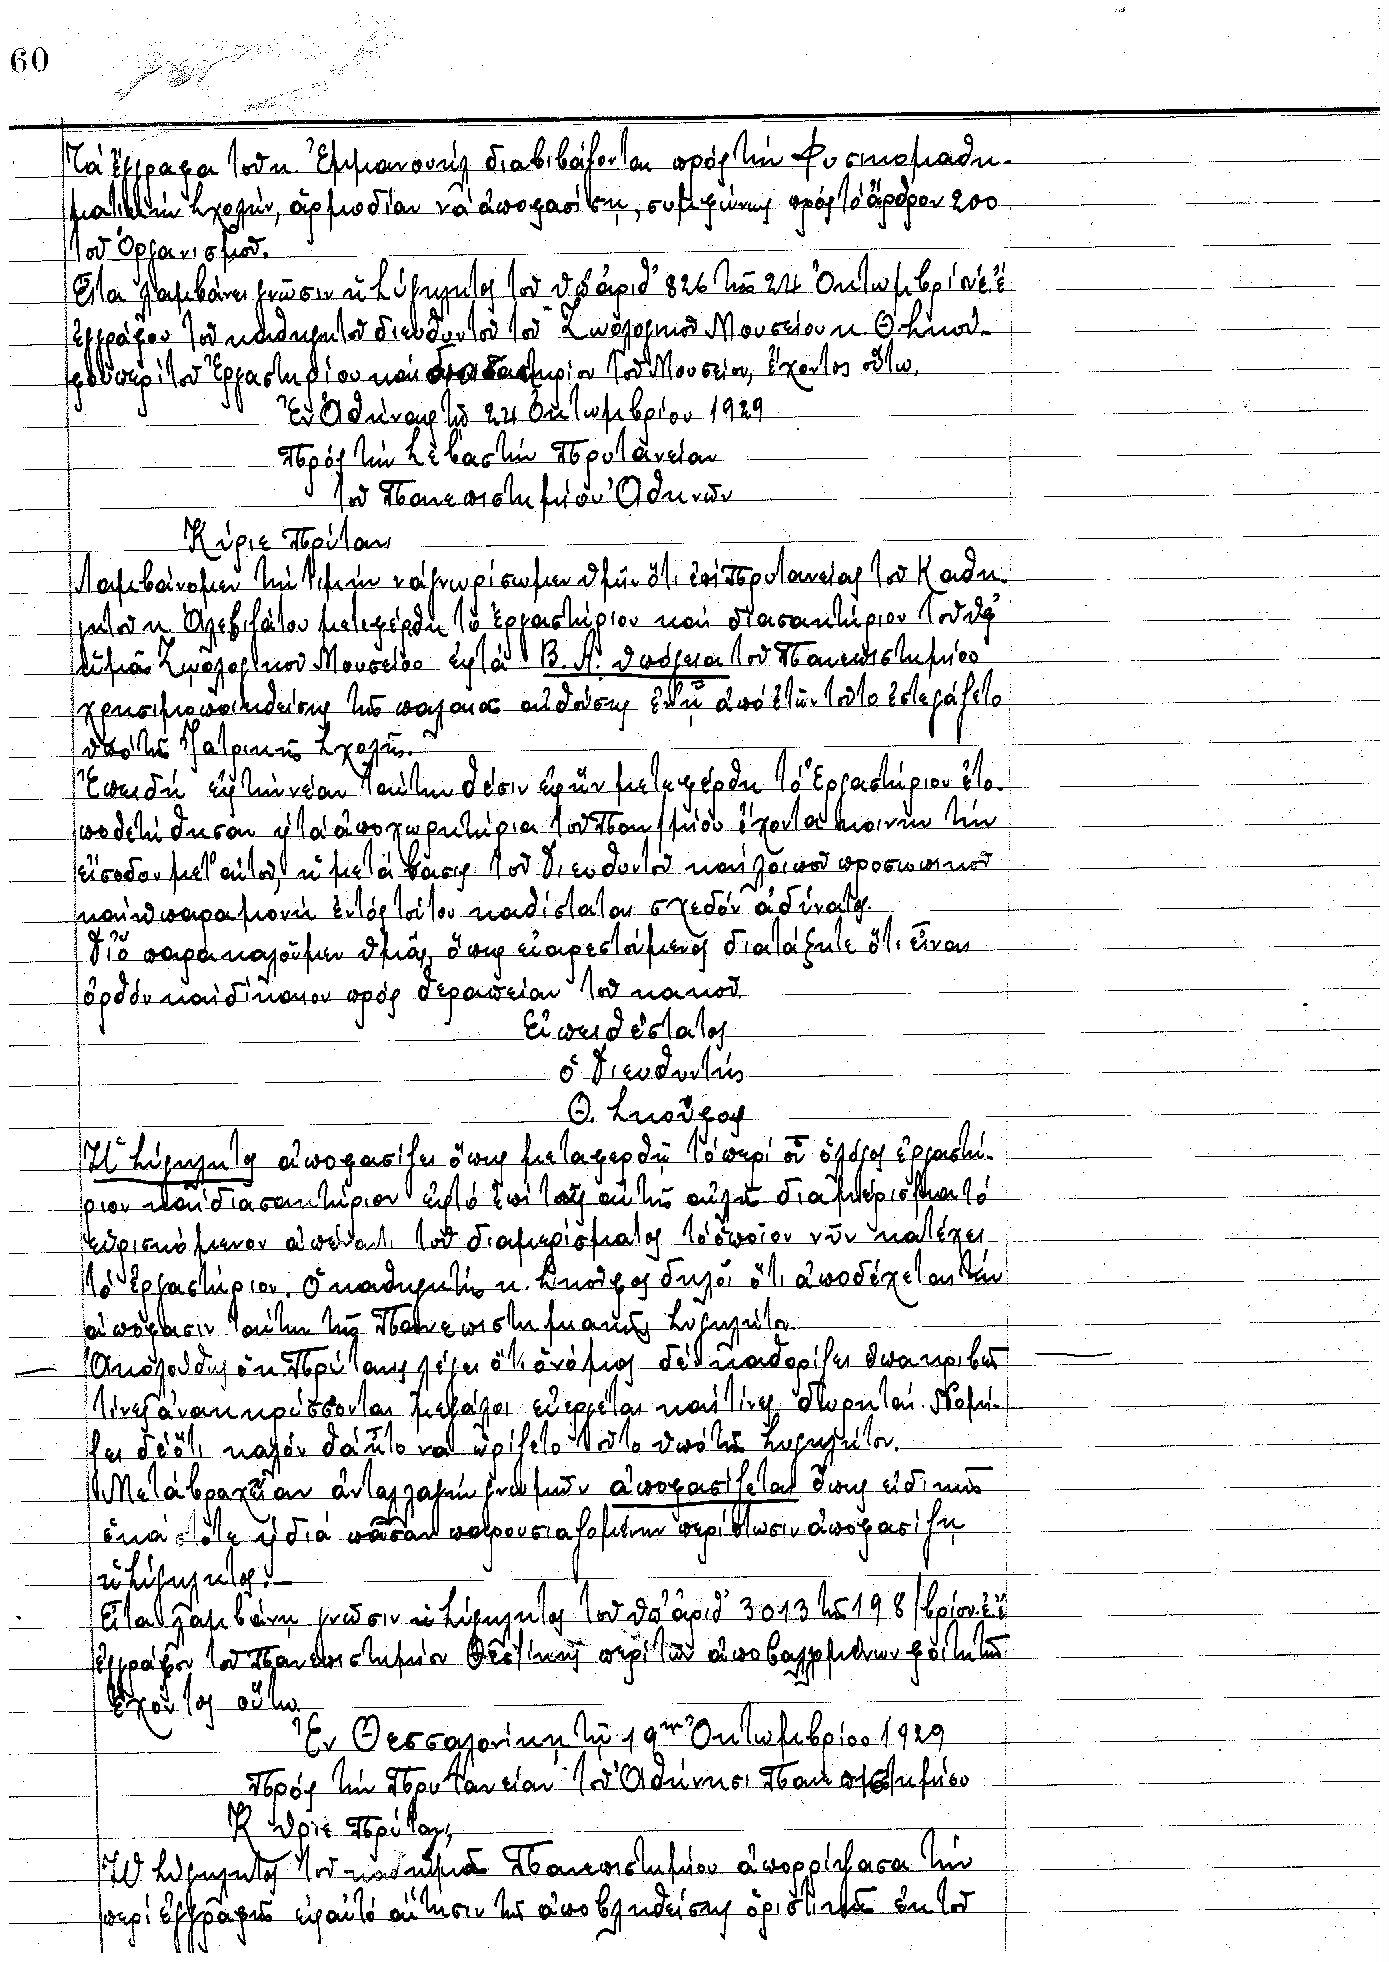 60
Τά ἔγγραφα τοῦ κ. Ἐμμανουήλ διαβιβάζονται πρός τήν Φυσικομαθη-
ματικήν Σχολήν, ἁρμοδίαν νά ἀποφασίσῃ, συμφώνως πρός τό ἄρθρον 200
τοῦ Ὀργανισμοῦ.
Εἶτα λαμβάνει γνῶσιν ἡ Σύγκλητος τοῦ ὑπ' ἀριθ' 826 τῆς 24 Ὀκτωμβρίου ἐ.ἔ
ἐγγράφου τοῦ καθηγητοῦ διευθυντοῦ τοῦ Ζωολογικοῦ Μουσείου κ. Θ. Σκού-
φου περί τοῦ Ἐργαστηρίου καί διασακτηρίου τοῦ Μουσείου, ἔχοντος οὕτω.
Ἐν Ἀθήναις τῇ 24 Ὀκτωμβρίου 1929
Πρός τήν Σεβαστήν Πρυτανείαν
τοῦ Πανεπιστημίου Ἀθηνῶν
Κύριε Πρύτανι
Λαμβάνομεν τήν τιμήν νά γνωρίσωμεν ὑμῖν ὅτι ἐπί Πρυτανείας τοῦ Καθη-
γητοῦ κ. Ἀλεβιζάτου μετεφέρθη τό ἐργαστήριον καί διασακτήριον τοῦ ὑφ'
ἡμᾶς Ζωολογικοῦ Μουσείου εἰς τά Β.Α. ὑπόγεια τοῦ Πανεπιστημίου
χρησιμοποιηθείσης τῆς παλαιᾶς αἰθούσης ἐν ᾗ ἀπό ἐτῶν τοῦτο ἐστεγάζετο
ὑπό τῆς Ἰατρικῆς Σχολῆς.
Ἐπειδή εἰς τήν νέαν ταύτην θέσιν εἰς ἥν μετεφέρθη τό Ἐργαστήριον ἐτο-
ποθετήθησαν τά ἀποχωρητήρια τοῦ Παν/μίου ἔχοντα κοινήν τήν
εἴσοδον μετ' αὐτοῦ, ἡ μετάβασις τοῦ Διευθυντοῦ καί λοιποῦ προσωπικοῦ
καί ἡ παραμονή ἐντός τούτου καθίσταται σχεδόν ἀδύνατος.
Διό παρακαλοῦμεν ὑμᾶς, ὅπως εὐαρεστούμενος διατάξητε ὅτι εἶναι
ὀρθόν καί δίκαιον πρός θεραπείαν τοῦ κακοῦ
Εὐπειθέστατος
ὁ Διευθυντής
Θ. Σκοῦφος
Ἡ Σύγκλητος ἀποφασίζει ὅπως μεταφερθῇ τό περί οὗ ὁ λόγος ἐργαστή-
ριον καί διασακτήριον εἰς τό ἐπί τῆς αὐτῆς αὐλῆς διαμέρισμα τό
εὑρισκόμενον ἀπέναντι τοῦ διαμερίσματος τό ὁποῖον νῦν κατέχει
τό ἐργαστήριον. Ὁ καθηγητής κ. Σκοῦφος δηλοῖ ὅτι ἀποδέχεται τήν
ἀπόφασιν ταύτην τῆς Πανεπιστημιακῆς Συγκλήτου.
Ἀκολούθως ὁ κ. Πρύτανις λέγει ὅτι ὁ νόμος δέν καθορίζει ἐπακριβῶς
τίνες ἀνακηρύσσονται μεγάλοι εὐεργέται καί τίνες δωρηταί. Νομί-
ζει δέ ὅτι καλόν θά ἦτο νά ὡρίζετο τοῦτο ὑπό τῆς Συγκλήτου.
Μετά βραχεῖαν ἀνταλλαγήν γνωμῶν ἀποφασίζεται ὅπως εἰδικῶς
ἑκάστοτε διά πᾶσαν παρουσιαζομένην περίπτωσιν ἀποφασίζῃ
ἡ Σύγκλητος.—
Εἶτα λαμβάνει γνῶσιν ἡ Σύγκλητος τοῦ ὑπ' ἀριθ' 3013 τῆς 19 8/βρίου ἐ.ἔ
ἐγγράφου τοῦ Πανεπιστημίου Θεσ/νίκης περί τῶν ἀποβαλλομένων φοιτητῶν
ἔχοντος οὕτω
Ἐν Θεσσαλονίκῃ τῇ 19ῃ Ὀκτωμβρίου 1929
Πρός τήν Πρυτανείαν τοῦ Ἀθήνησι Πανεπιστημίου
Κύριε Πρύτανι,
Ἡ Σύγκλητος τοῦ καθ' ἡμᾶς Πανεπιστημίου ἀπορρίψασα τήν
περί ἐγγραφῆς εἰς αὐτό αἴτησιν τῆς ἀποβληθείσης ὁριστικῶς ἐκ τοῦ